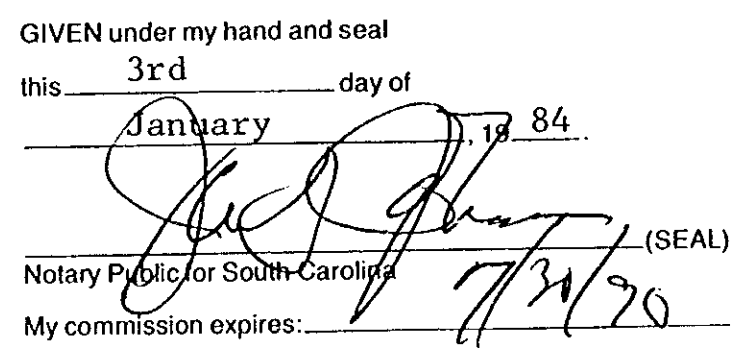 GIVEN under my hand and seal
this 3rd day of
January, 19 84.
(SEAL)
Notary Public for South Carolina
My commission expires: 7/30/90